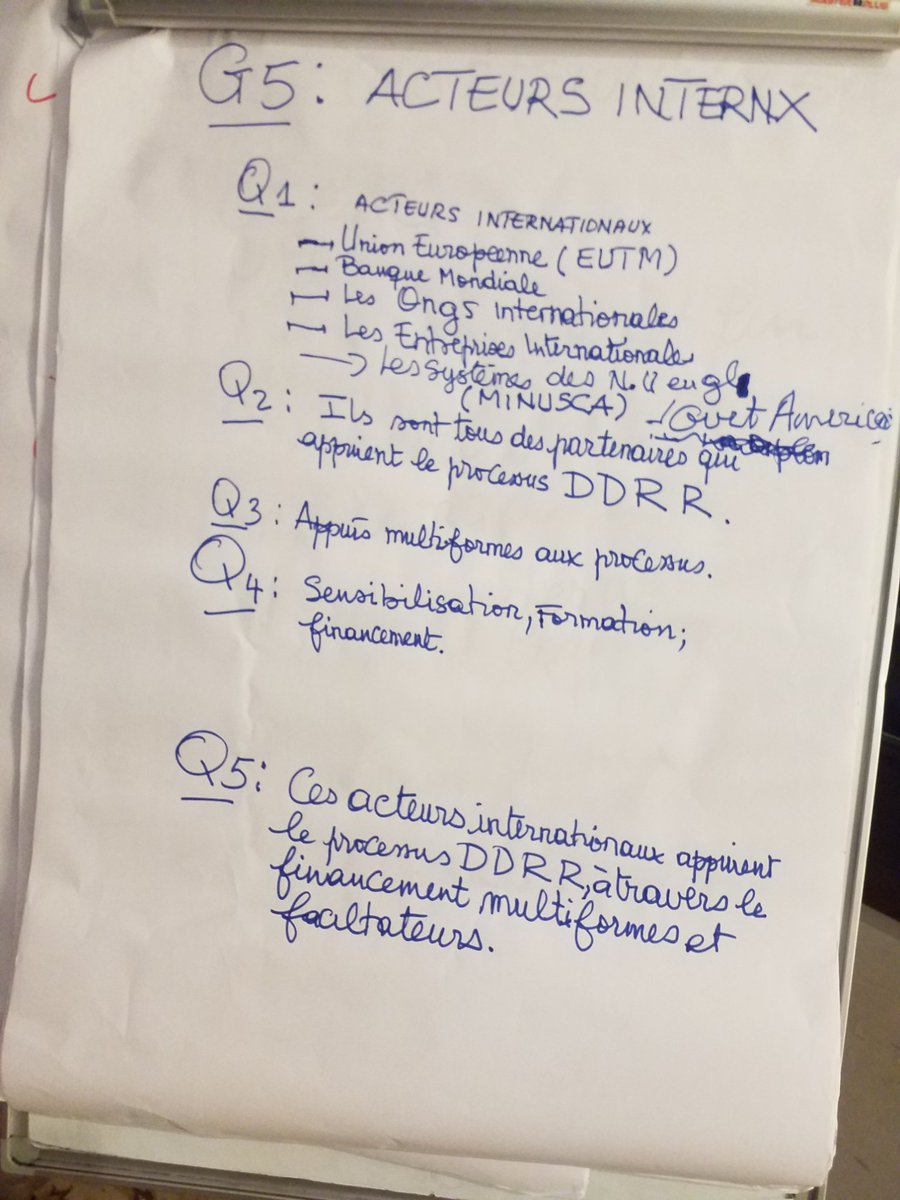 G5: ACTEURS INTERNX
Q1: ACTEURS INTERNATIONAUX
— Union Européenne (EUTM)
— Banque Mondiale
— Les Ongs internationales
— Les Entreprises Internationales
→ Les Systèmes des N.U en gl
(MINUSCA) - Govet Americai
Q2: Ils sont tous des partenaires qui
appuient le processus DDRR.
Q3: Appuis multiformes aux processus.
Q4: Sensibilisation, Formation;
financement.
Q5: Ces acteurs internationaux appuient
le processus DDRR, à travers le
financement multiformes et
faciltateurs.